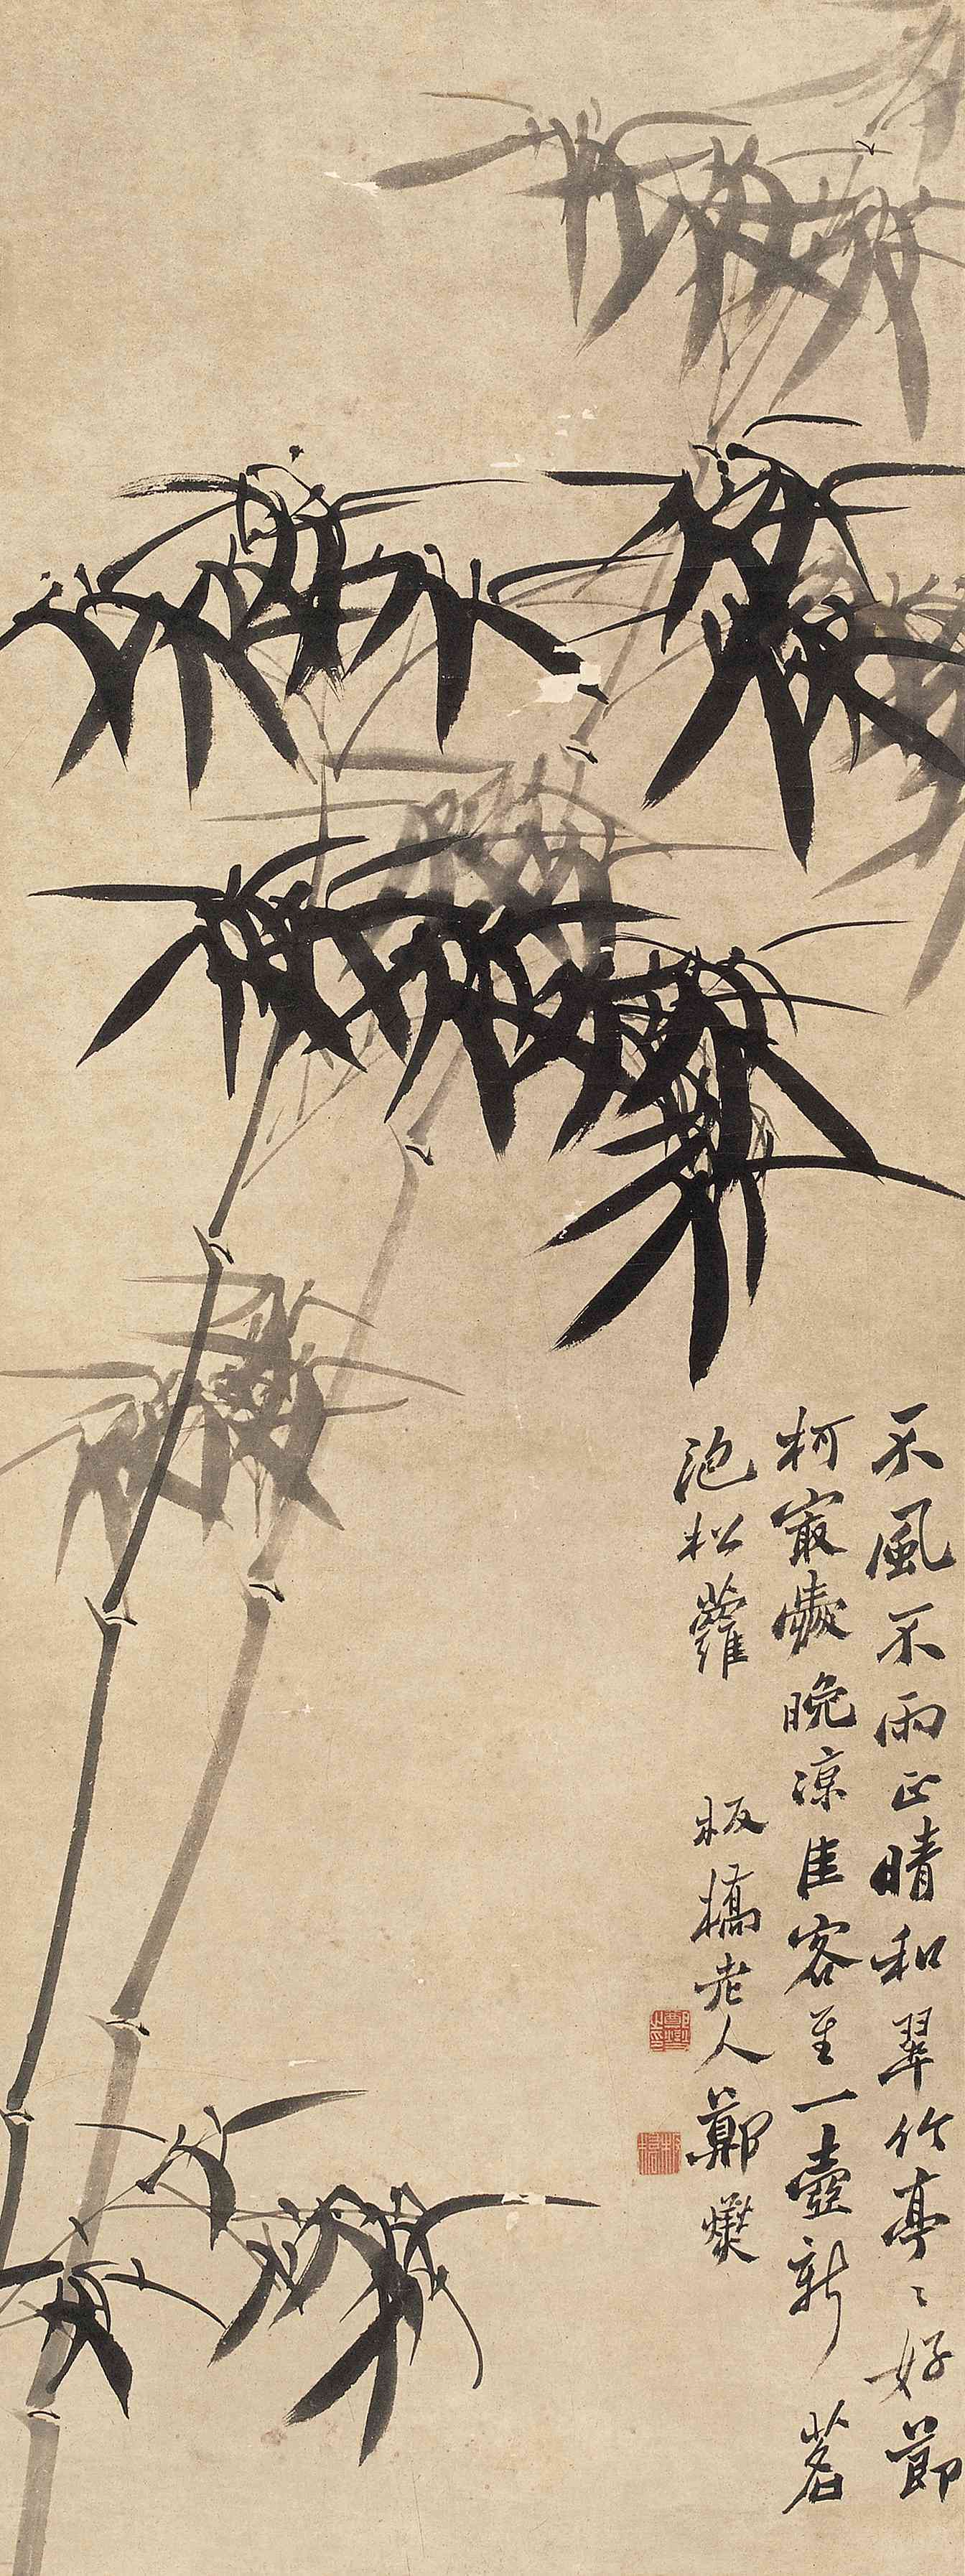 不風不雨正晴和翠竹亭〻好節
柯最愛晚涼佳客至一壺新茗
泡松蘿
板橋老人鄭燮